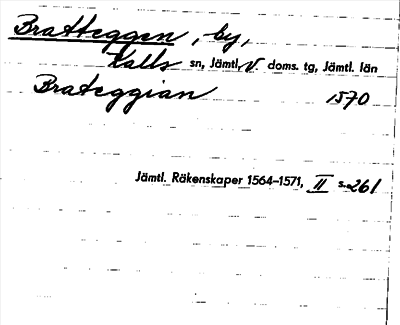 Bratteggen, by,
Kalls sn, Jämtl. V. doms. tg, Jämtl. län
Brateggian 1570
Jämtl. Räkenskaper 1564–1571, II s. 261